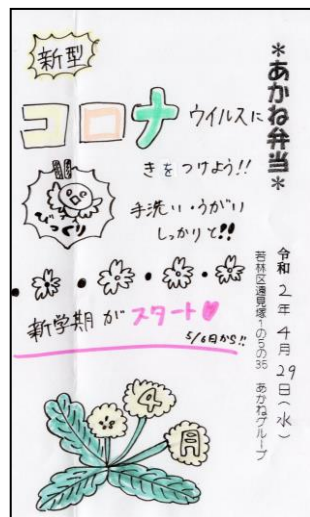 ＊あかね弁当＊
令和2年4月29日(水)
若林区遠見塚1の5の35 あかねグループ
新型
コロナウイルスに
きをつけよう!!
手洗い・うがい
しっかりと!!
びっくり
新学期がスタート♥
5/6日から!!
4月